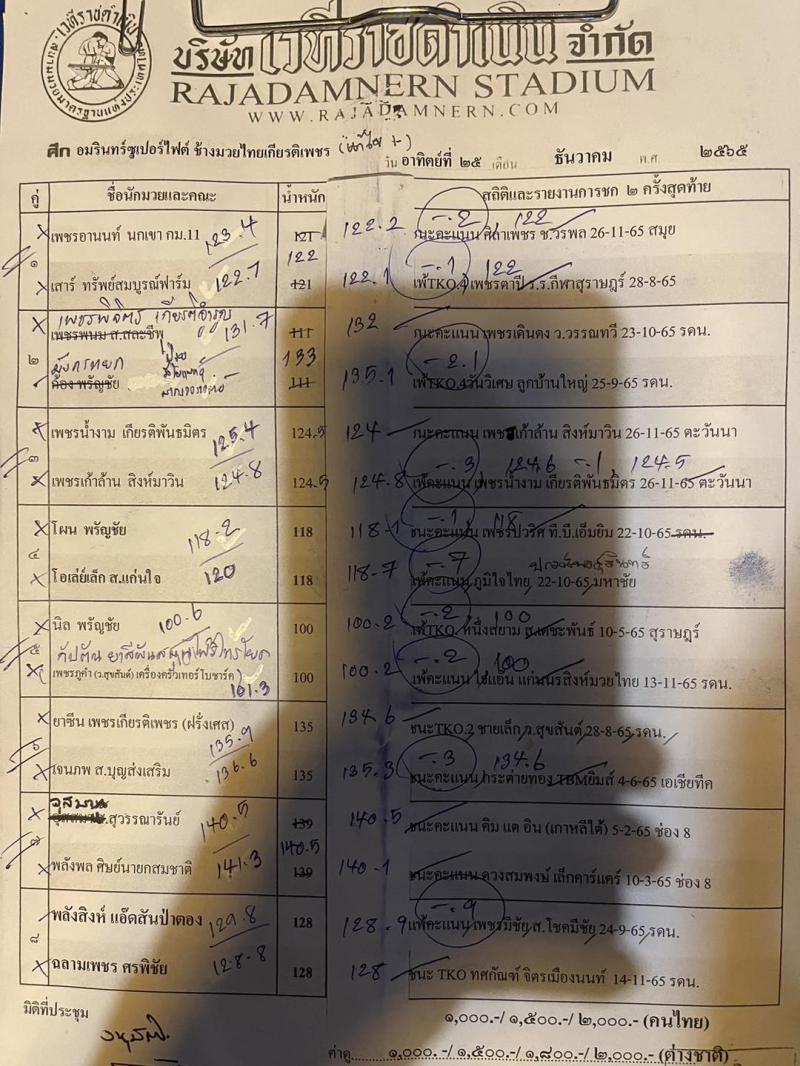 บริษัท เวทีราชดำเนิน จำกัด
RAJADAMNERN STADIUM
WWW.RAJADAMNERN.COM
ศึก อมรินทร์ซูเปอร์ไฟต์ ช้างมวยไทยเกียรติเพชร
วัน อาทิตย์ที่ ๒๕ เดือน ธันวาคม พ.ศ. ๒๕๖๕
คู่ ชื่อนักมวยและคณะ น้ำหนัก สถิติและรายงานการชก ๒ ครั้งสุดท้าย
เพชรอานนท์ นกเขา กม.11 123.4 121 122.2 -.2 122 ชนะคะแนน ศิลาเพชร ช.วรพล 26-11-65 สมุย
๑ 122
เสาร์ ทรัพย์สมบูรณ์ฟาร์ม 122.7 121 122.1 -.1 122 แพ้TKO.4 เพชรตาปี ร.ร.กีฬาสุราษฎร์ 28-8-65
เพชรพิจิตร
เพชรพนม ส.สละชีพ 131.7 111 132 ชนะคะแนน เพชรเดินดง ว.วรรณทวี 23-10-65 รดน.
๒ มังกรหยก 133
ก้อง พรัญชัย 111 135.1 -2.1 แพ้TKO.4วันวิเศษ ลูกบ้านใหญ่ 25-9-65 รดน.
เพชรน้ำงาม เกียรติพันธมิตร 125.4 124.5 124 ชนะคะแนน เพชรเก้าล้าน สิงห์มาวิน 26-11-65 ตะวันนา
๓ -.3 124.6 -.1, 124.5
เพชรเก้าล้าน สิงห์มาวิน 124.8 124.5 124.8 แพ้คะแนน เพชรน้ำงาม เกียรติพันธมิตร 26-11-65 ตะวันนา
โผน พรัญชัย 118.2 118 118.1 -.1 118 ชนะคะแนน เพชรปวริศ ที.บี.เอ็มยิม 22-10-65 รดน.
๔
โอเล่ย์เล็ก ส.แก่นใจ 120 118 118.7 -.7 แพ้คะแนน ภูมิใจไทย 22-10-65 มหาชัย
นิล พรัญชัย 100.6 100 100.2 -.2 100 แพ้TKO. หนึ่งสยาม ส.เดชะพันธ์ 10-5-65 สุราษฎร์
๕ กัปตัน
เพชรภูคำ (ว.สุขสันต์) เครื่องครัวเทอร์โบชาร์ค 101.3 100 100.2 -.2 100 แพ้คะแนน ไข่แอ้น แก่นนรสิงห์มวยไทย 13-11-65 รดน.
ยาซีน เพชรเกียรติเพชร (ฝรั่งเศส) 135.9 135 134.6 ชนะTKO.2 ชายเล็ก ว.สุขสันต์ 28-8-65 รดน.
๖
เจนภพ ส.บุญส่งเสริม 136.6 135 135.3 -.3 134.6 ชนะคะแนน กระต่ายทอง TBMยิมส์ 4-6-65 เอเชียทีค
อุสมาน .สุวรรณารันย์ 140.5 139 140.5 ชนะคะแนน คิม แต อิน (เกาหลีใต้) 5-2-65 ช่อง 8
๗ 140.5
พลังพล ศิษย์นายกสมชาติ 141.3 139 140.1 ชนะคะแนน ดวงสมพงษ์ เล็กคาร์แคร์ 10-3-65 ช่อง 8
พลังสิงห์ แอ๊ดสันป่าตอง 129.8 128 128.9 -.9 แพ้คะแนน เพชรมีชัย ส.โชคมีชัย 24-9-65 รดน.
๘
ฉลามเพชร ศรพิชัย 128.8 128 128 ชนะ TKO ทศกัณฑ์ จิตรเมืองนนท์ 14-11-65 รดน.
มิติที่ประชุม ๑,๐๐๐.-/ ๑,๕๐๐.-/ ๒,๐๐๐.- (คนไทย)
อนุมัติ
ค่าดู......๑,๐๐๐. -/ ๑,๕๐๐.-/ ๑,๘๐๐.-/ ๒,๐๐๐.- (ต่างชาติ)